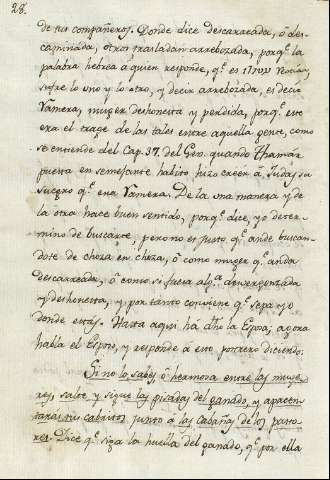 28.
de tus compañeros. Donde dice descarreada, ó des-
caminada, otros trasladan arrebozada, porq.e la
palabra hebrea á quien responde, q.e es
sufre lo uno y lo otro, y decir arrebozada, es decir
ramera, muger deshonesta y perdida, porq.e este
era el trage de las tales entre aquella gente, como
se entiende del Cap. 37. del Gen. quando Thamar
puesta en semejante habito hizo creer á Judas su
suegro q.e era ramera. De la una manera y de
la otra hace buen sentido, porq.e dice, yo deter-
mino de buscarte, pero no es justo q.e ande buscan-
dote de choza en choza, ó como muger q.e anda
descarreada, ó como si fuera alg.a desvergonzada
y deshonesta, y por tanto conviene q.e sepa yo
donde estás. Hasta aqui há dho la Esposa, agora
habla el Esposo, y responde á esto postrero diciendo:
Si no lo sabes ó hermosa entre las muge-
res, salte y sigue las pisadas del ganado, y apacen-
tarás tus cabritos junto á las cabañas de los pasto-
res. Dice q.e siga la huella del ganado, q.e por ella